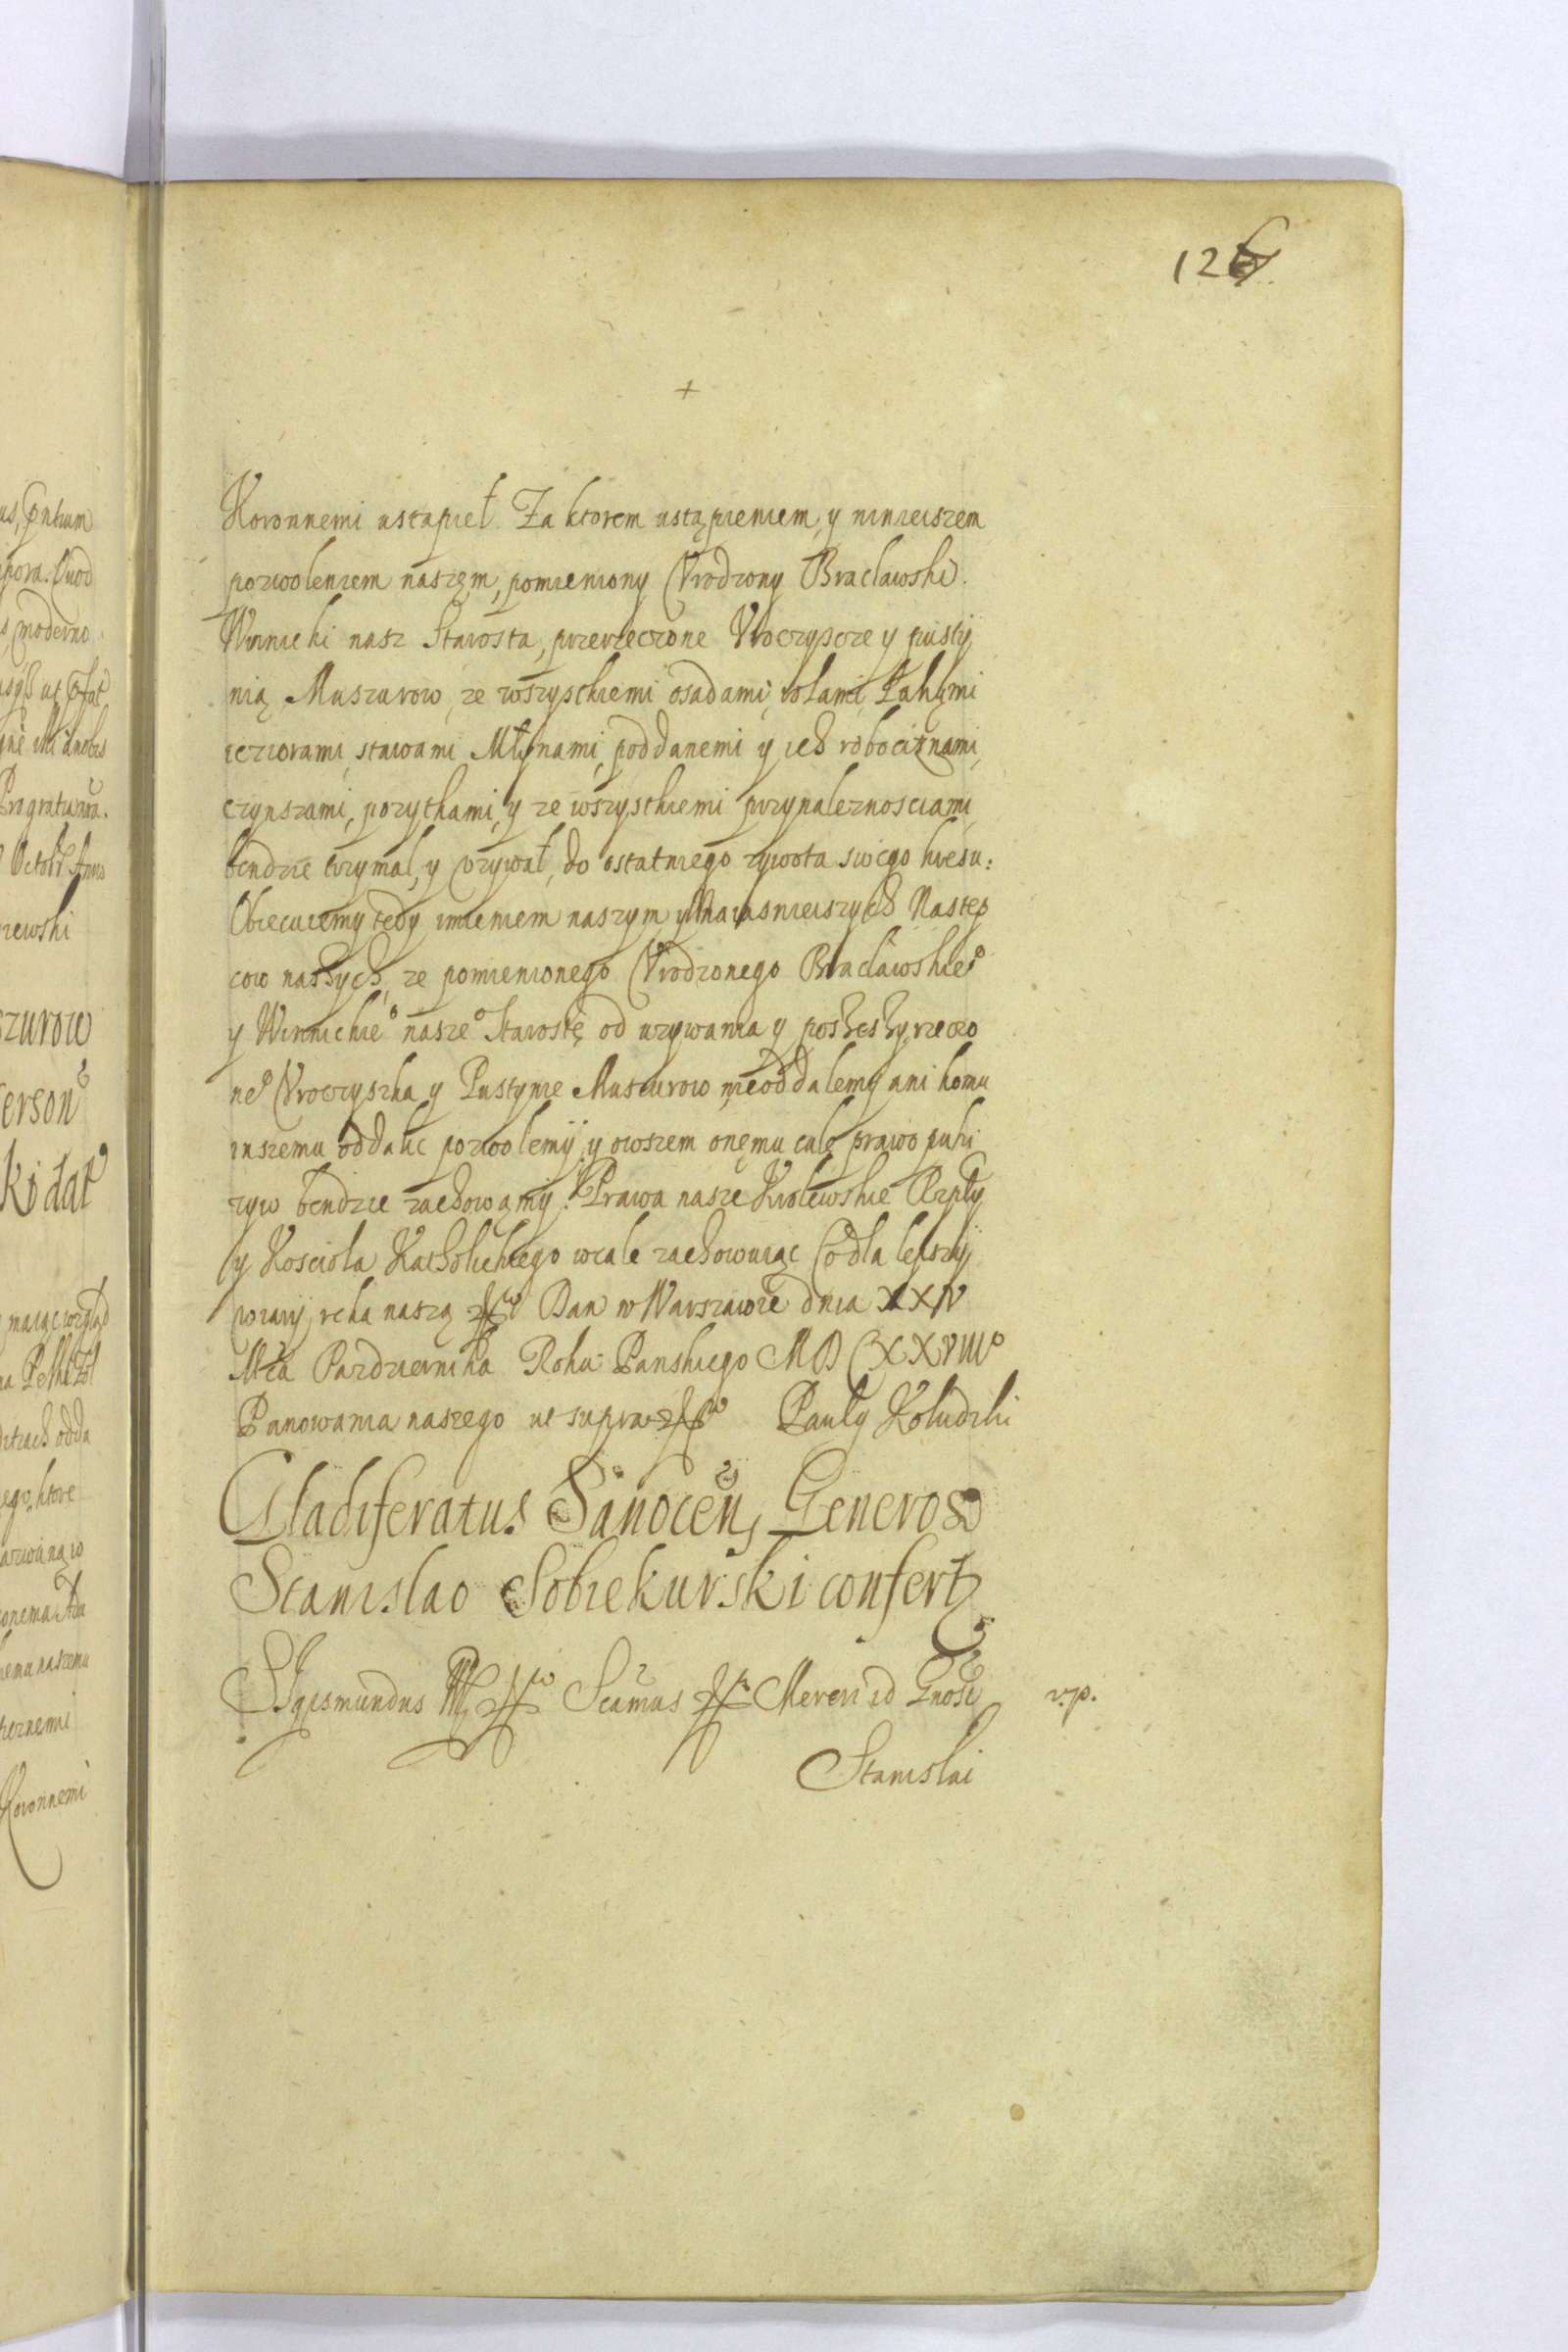 126
+
Koronnemi ustąpieł. Za ktorem ustąpieniem, y ninieiszem
pozwoleniem naszęm, pomieniony Vrodzony Braclawski
Winnicki nasz Starosta, przerzeczone Vroczyscze y pusty
nią Maszurow, ze wszystkiemi osadami, rolami, Łąkąmi
ieziorami, stawami Młynami, poddanemi y ich robociznami,
czynszami, pozytkami, y ze wszystkiemi przynaleznosciami,
bendzie trzymal, y vzywał, do ostatniego zywota swego kresu:
Obiecuiemy tedy imieniem naszym y Naiasnieiszych Następ
cow naszych, ze pomienionego Vrodzonego Braclawskieo
y Winnickieo naszeo Starostę od uzywania y possessyi rzeczo
neo Vroczyska y Pustynie Maszurow nieoddalemy ani komu
inszemu oddalic pozwolemy, y owszem onęmu cale prawo puki
zyw bendzie zachowąmy. Prawa nasze Krolewskie Rzpty
y Kosciola Katholickiego wcale zachowuiąc Co dla lepszy
wiary ręka naszą Dan w Warszawie dnia XXIV
Mca Pazdziernika Roku Panskiego MDCXXVIIIo
Panowania naszego ut supra Pauly Koludzki
Gladiferatus Sanocen, Generoso
Stanislao Sobiekurski confert
Sigismundus Scamus Mereri id Gnosi v.p.
Stanislai